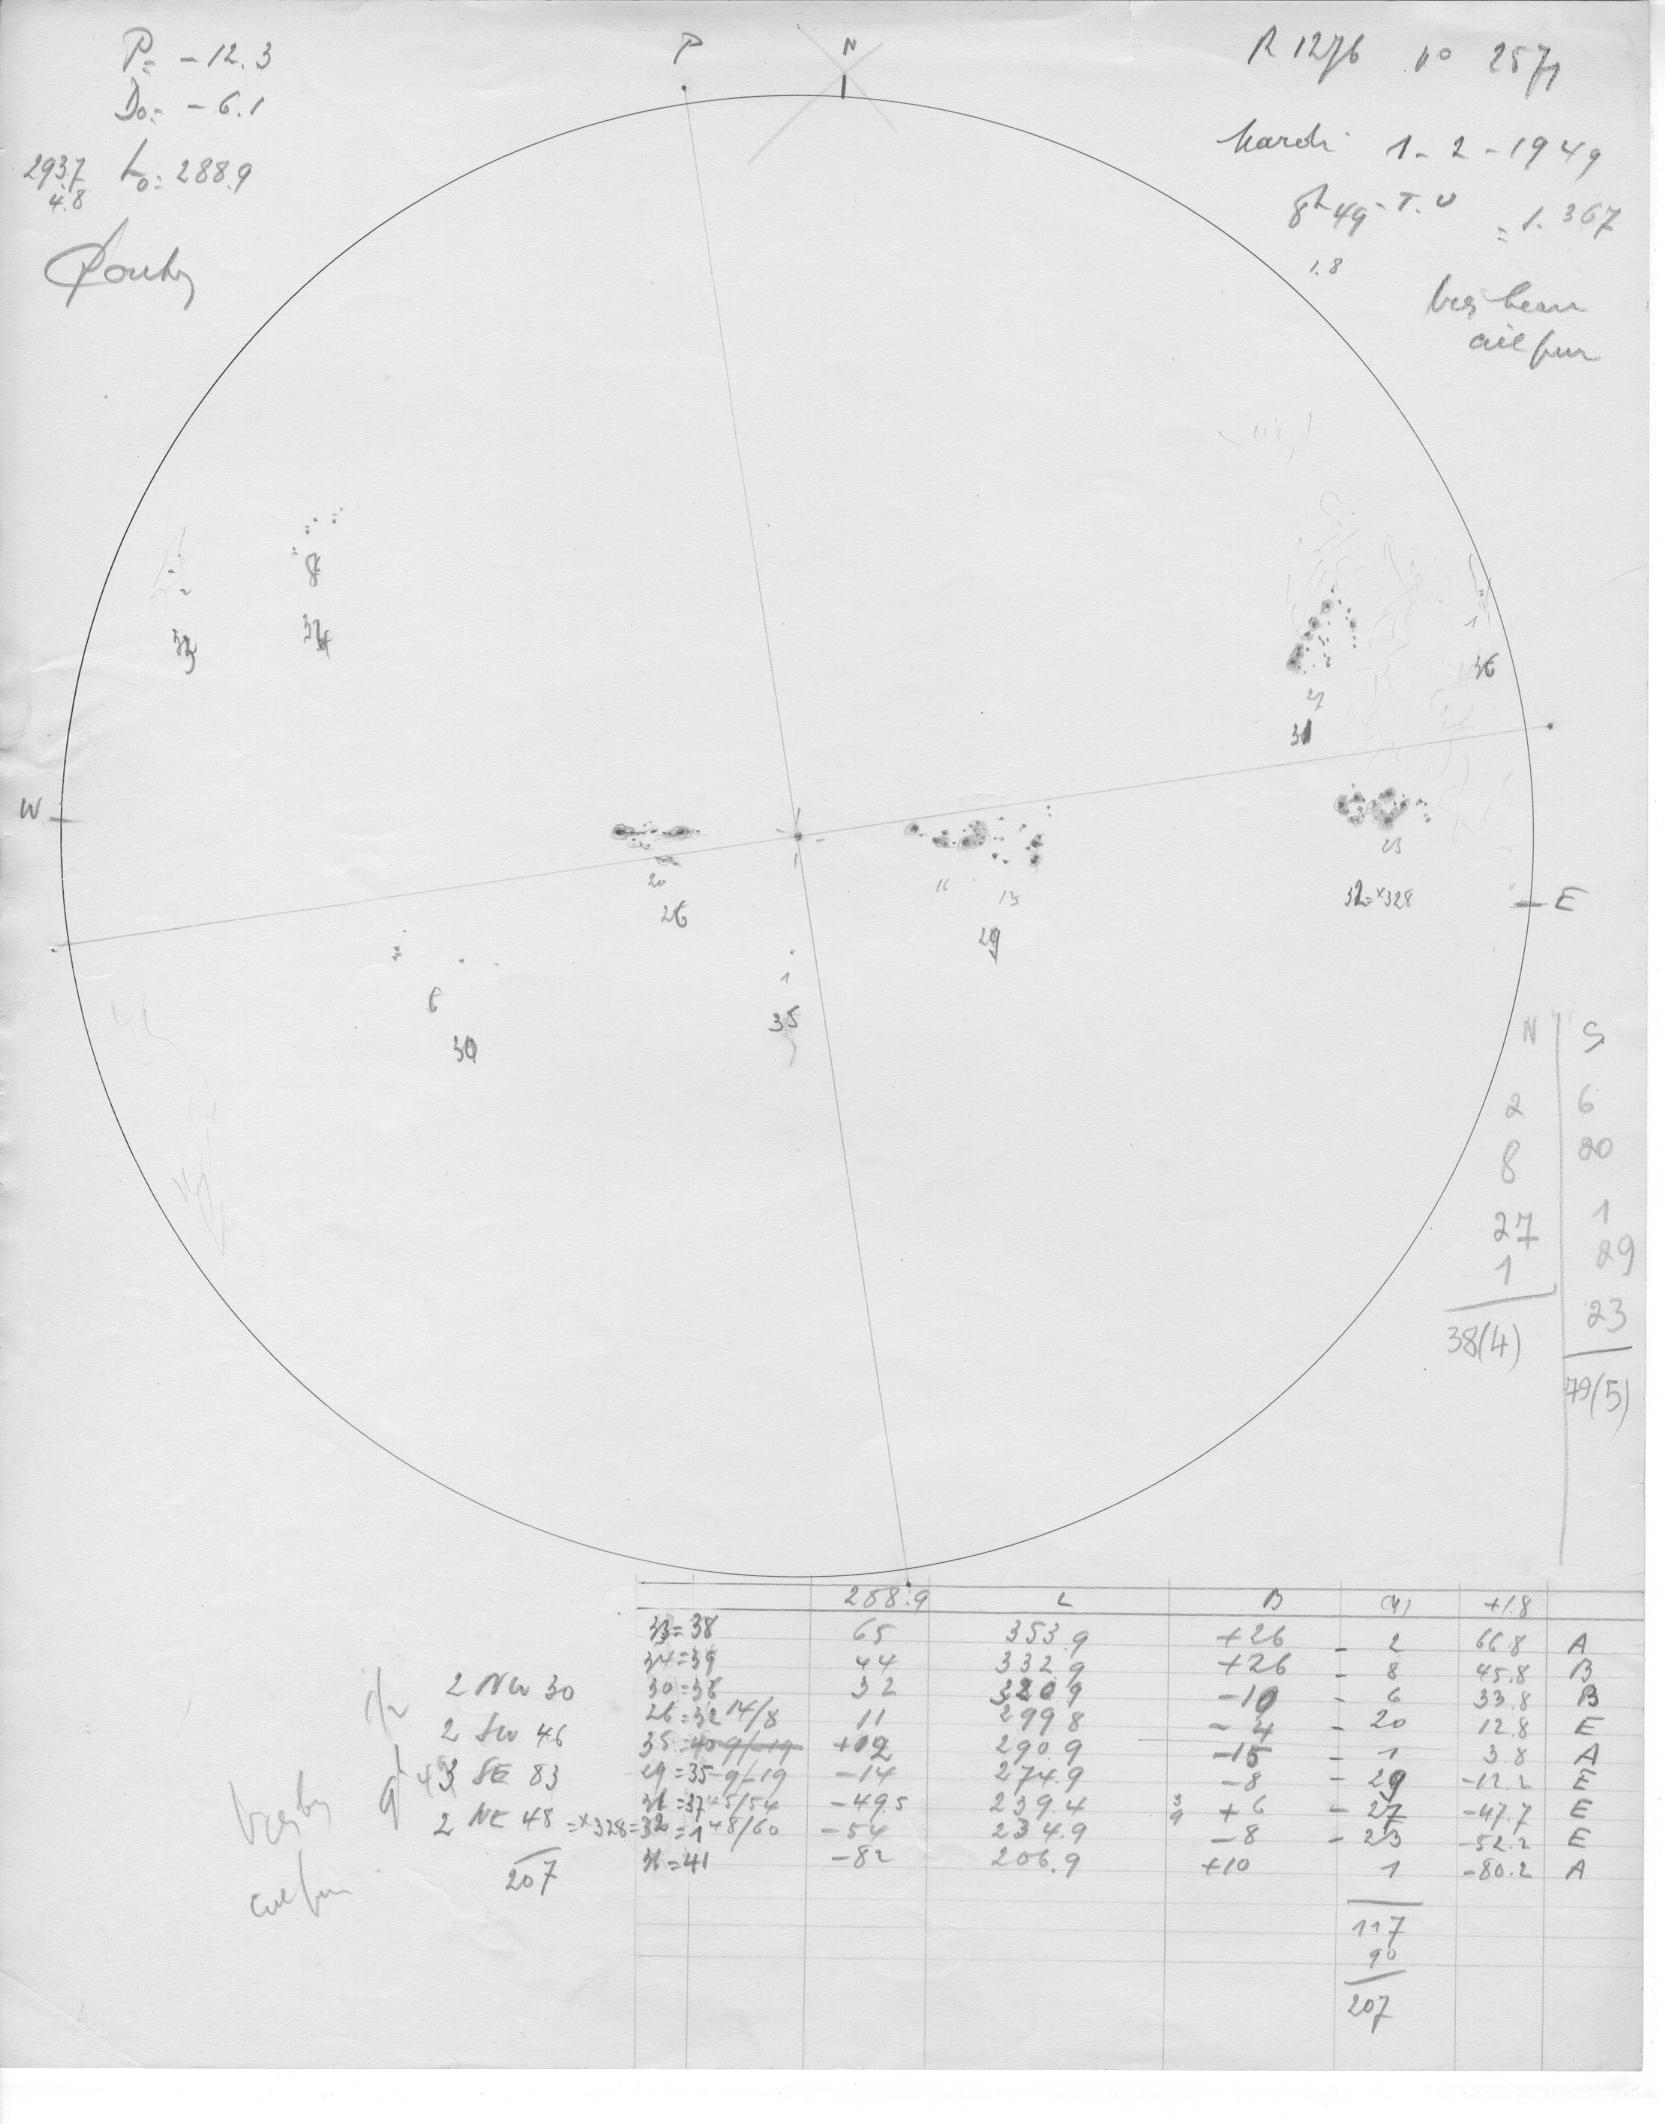 P= -12.3
D0= -6.1
293.7 L0= 288.9
4.8
P
N
R 1276 no 2571
Mardi 1-2-1949
8h 49 T.U = 1.367
1.8
très beau
ciel pur
8
33
34
36
27
31
W
E
20
26
16
13
29
23
32=x328
6
30
1
35
N S
2 6
8 20
27 1
1 29
23
38(4)
79(5)
288.9 L B (4) +1.8
33=38 65 353.9 +26 - 2 66.8 A
34=39 44 332.9 +26 - 8 45.8 B
30=36 32 320.9 -10 - 6 33.8 B
26=32 14/8 11 299.8 -4 - 20 12.8 E
35 +02 290.9 -15 - 1 3.8 A
29=35-9/-19 -14 274.9 -8 - 29 -12.2 E
31=37 45/54 -49.5 239.4 +6 - 27 -47.7 E
32=1 48/60 -54 234.9 -8 - 23 -52.2 E
36=41 -82 206.9 +10 1 -80.2 A
2 NW 30
2 SW 46
3 SE 83
2 NE 48 =x328=
207
117
90
207
ciel pur